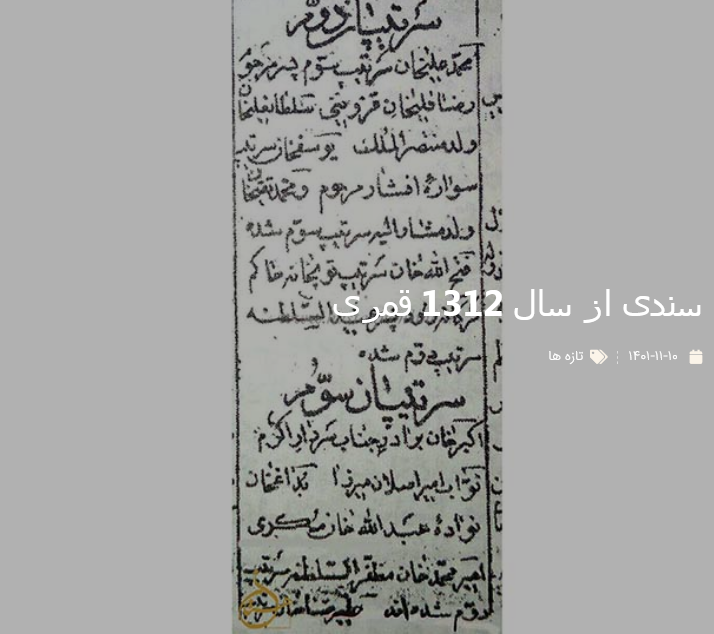 سرتیپان دوم
محمد علیخان سرتیپ سوم پسر مرحوم
رضا قلیخان قزوینی سلطانعلیخان
ولد منتصر الملک یوسفخان سرتیپ
سوارهٔ افشار مرحوم و محمد تقیخان
ولد مشار الیه سرتیپ سوم شده
فتح الله خان سرتیپ توپخانه حاکم
السلطنه
سرتیپ دوم شده
سرتیپان سوّم
اکبر خان برادر جناب سردار اکرم
نواب امیر اصلان میرزا
نوادهٔ عبد الله خان
امیر محمد خان مظفر السلطنه سرتیپ
دوم شده اند
سندی از سال 1312 قمری
۱۴۰۱-۱۱-۱۰
تازه ها